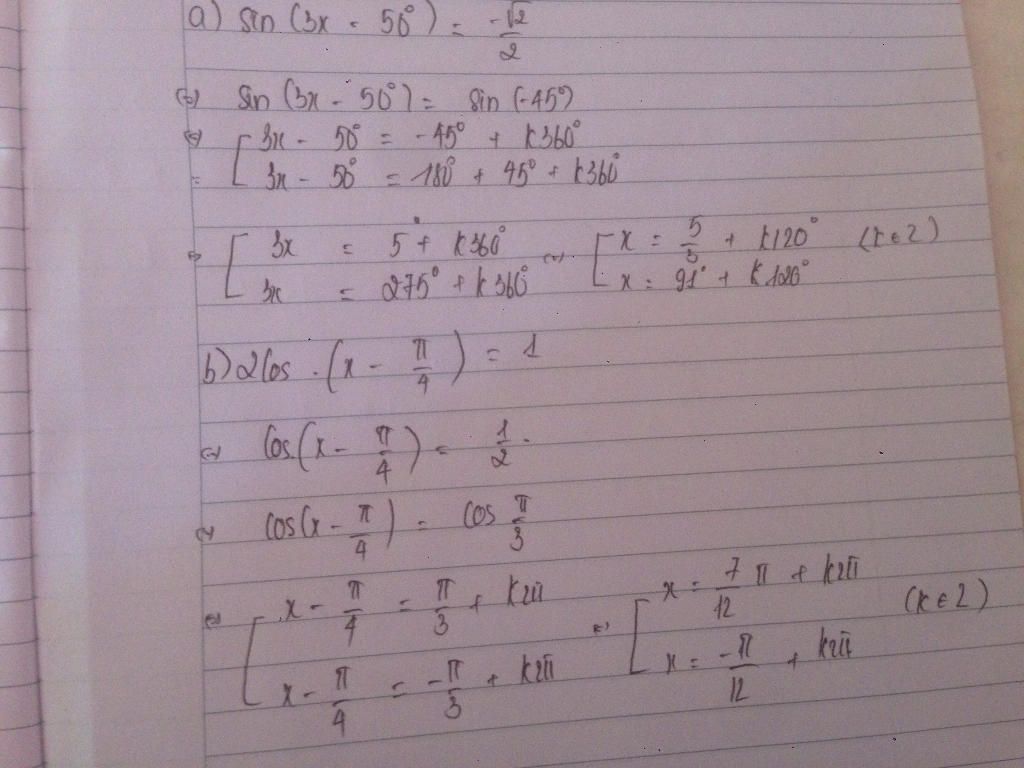 a) sin (3x - 50°) = -√2/2
⇔ sin (3x - 50°) = sin (-45°)
⇔ [ 3x - 50° = -45° + k360°
3x - 50° = 180° + 45° + k360°
⇔ [ 3x = 5° + k360° ⇔ [ x = 5/3 + k120° (k ∈ Z)
3x = 275° + k360° x = 91° + k120°
b) 2cos . (x - π/4) = 1
⇔ cos (x - π/4) = 1/2
⇔ cos (x - π/4) = cos π/3
⇔ [ x - π/4 = π/3 + k2π ⇔ [ x = 7/12 π + k2π (k ∈ Z)
x - π/4 = -π/3 + k2π x = -π/12 + k2π